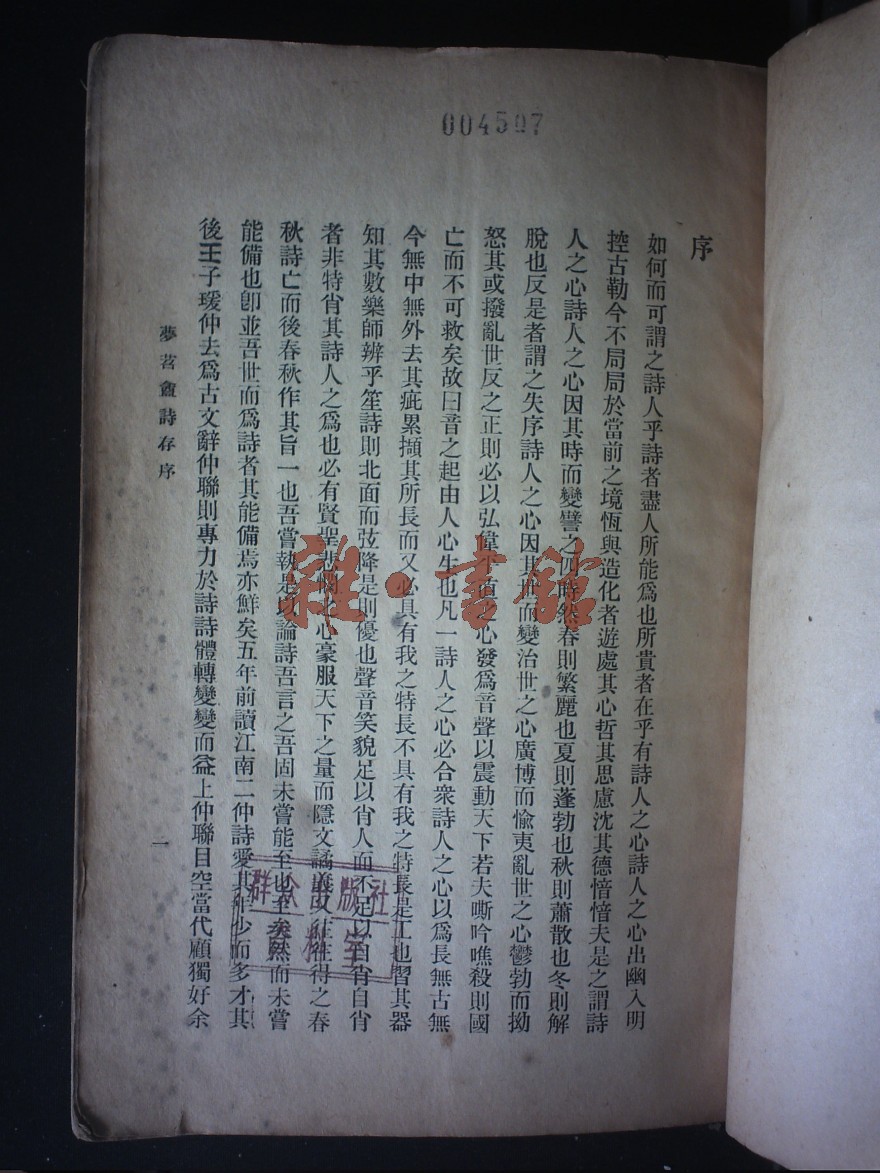 004507
序
如何而可謂之詩人乎詩者盡人所能爲也所貴者在乎有詩人之心詩人之心出幽入明
控古勒今不局局於當前之境恆與造化者遊處其心哲其思慮沈其德愔愔夫是之謂詩
人之心詩人之心因其時而變譬之四時然春則繁麗也夏則蓬勃也秋則蕭散也冬則解
脫也反是者謂之失序詩人之心因其世而變治世之心廣博而愉夷亂世之心鬱勃而拗
怒其或撥亂世反之正則必以弘偉平直之心發爲音聲以震動天下若夫嘶吟噍殺則國
亡而不可救矣故曰音之起由人心生也凡一詩人之心必合衆詩人之心以爲長無古無
今無中無外去其疵累擷其所長而又必具有我之特長不具有我之特長是工也習其器
知其數樂師辨乎笙詩則北面而弦降是則優也聲音笑貌足以肖人而不足以自肖自肖
者非特肖其詩人之爲也必有賢聖悲憫之心豪服天下之量而隱文譎義又往往得之春
秋詩亡而後春秋作其旨一也吾嘗執是以論詩吾言之吾固未嘗能至也至矣然而未嘗
能備也卽並吾世而爲詩者其能備焉亦鮮矣五年前讀江南二仲詩愛其年少而多才其
後王子瑗仲去爲古文辭仲聯則專力於詩詩體轉變變而益上仲聯目空當代顧獨好余
夢苕盦詩存序
一
雜·書館
群众出版社
資料室